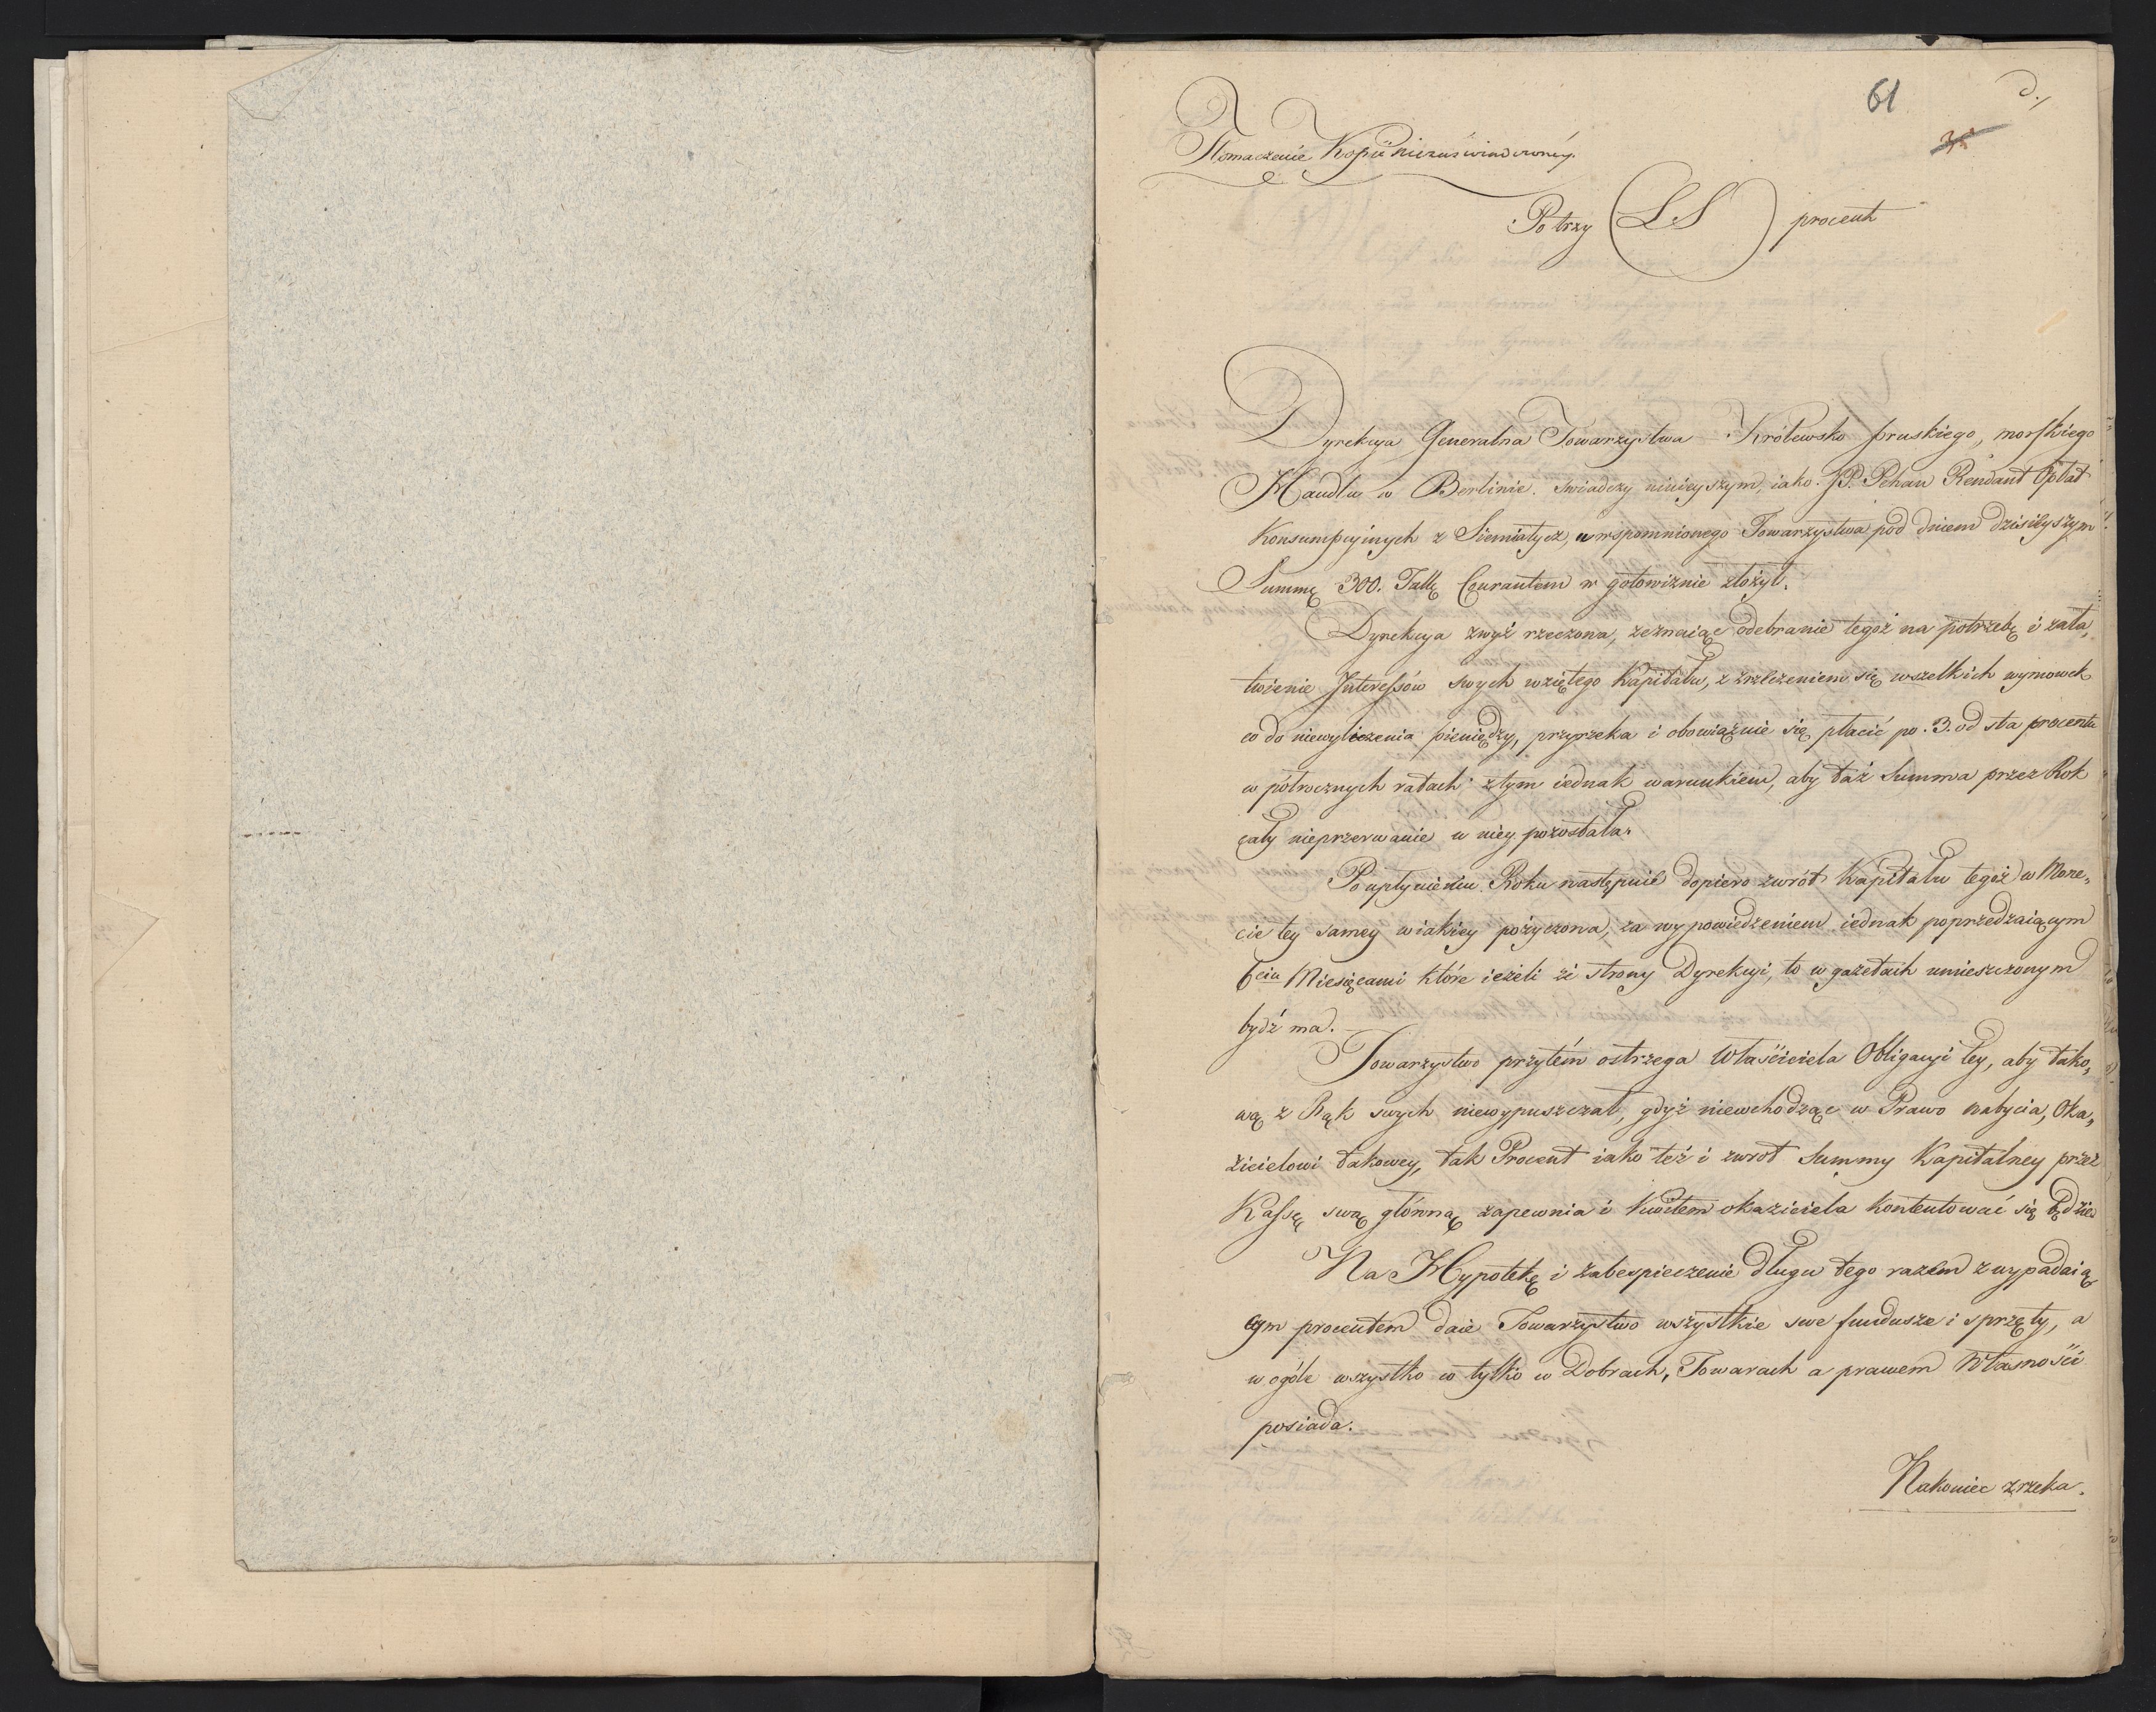 61
d./
Tłomaczenie Kopii niezaświadczoney.
Po trzy (LS) procent
Dyrekcya Generalna Towarzystwa Królewsko pruskiego, morskiego
Handlu w Berlinie. świadczy ninieyszym, iako JP. Pehan Rendant Opłat
Konsumpcyinych z Siemiatycz, u wspomnionego Towarzystwa pod dniem dzisieyszym
Summę 300. Tallę Courantem w gotowiznie złożył.
Dyrekcya zwyż rzeczona, zeznaiąc odebranie tegoż na potrzebę i zała„
twienie Interessów swych wziętego Kapitału, z zrzeczeniem się wszelkich wymowek
co do niewyliczenia pieniędzy, przyrzeka i obowiązuie się płacić po. 3. od sta procentu
w półrocznych ratach z tym iednak warunkiem, aby taż Summa przez Rok
cały nieprzerwanie u niey pozostała.
Po upłynieniu Roku następuie dopiero zwrót Kapitału tegoż w Mone„
cie tey samey w iakiey pożyczona, za wypowiedzeniem iednak poprzedzaiącym
6ciu Miesięcami które ieżeli ze strony Dyrekcyi, to w gazetach umieszczonym
bydź ma.
Towarzystwo przytém ostrzega Właściciela Obligacyi tey, aby tako„
wą z Rąk swych niewypuszczał, gdyż niewchodząc w Prawo nabycia, Oka„
zicielowi takowey, tak Procent iako też i zwrot Summy Kapitalney przez
Kassę swą główną zapewnia i kwitem okaziciela kontentować się będzie
Na Hypotekę i zabespieczenie długu tego razem z wypadaią
cym procentem daie Towarzystwo wszystkie swe fundusze i sprzęty, a
w ogóle wszystko co tylko w Dobrach, Towarach a prawem Własności
posiada.
Nakoniec zrzeka.